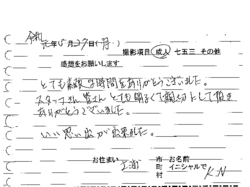 令和 元年5月27日(月)
撮影項目 成人 七五三 その他
感想をお願いします
とても素敵な時間をありがとうございました。
スタッフさん 皆さん とても明るくて親切にして頂き
ありがとうございました。
いい思い出が出来ました。
お住まい 市 お名前
町 イニシャルで K.N
村